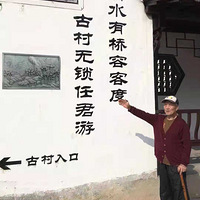 水有桥容客度
古村无锁任君游
古村入口